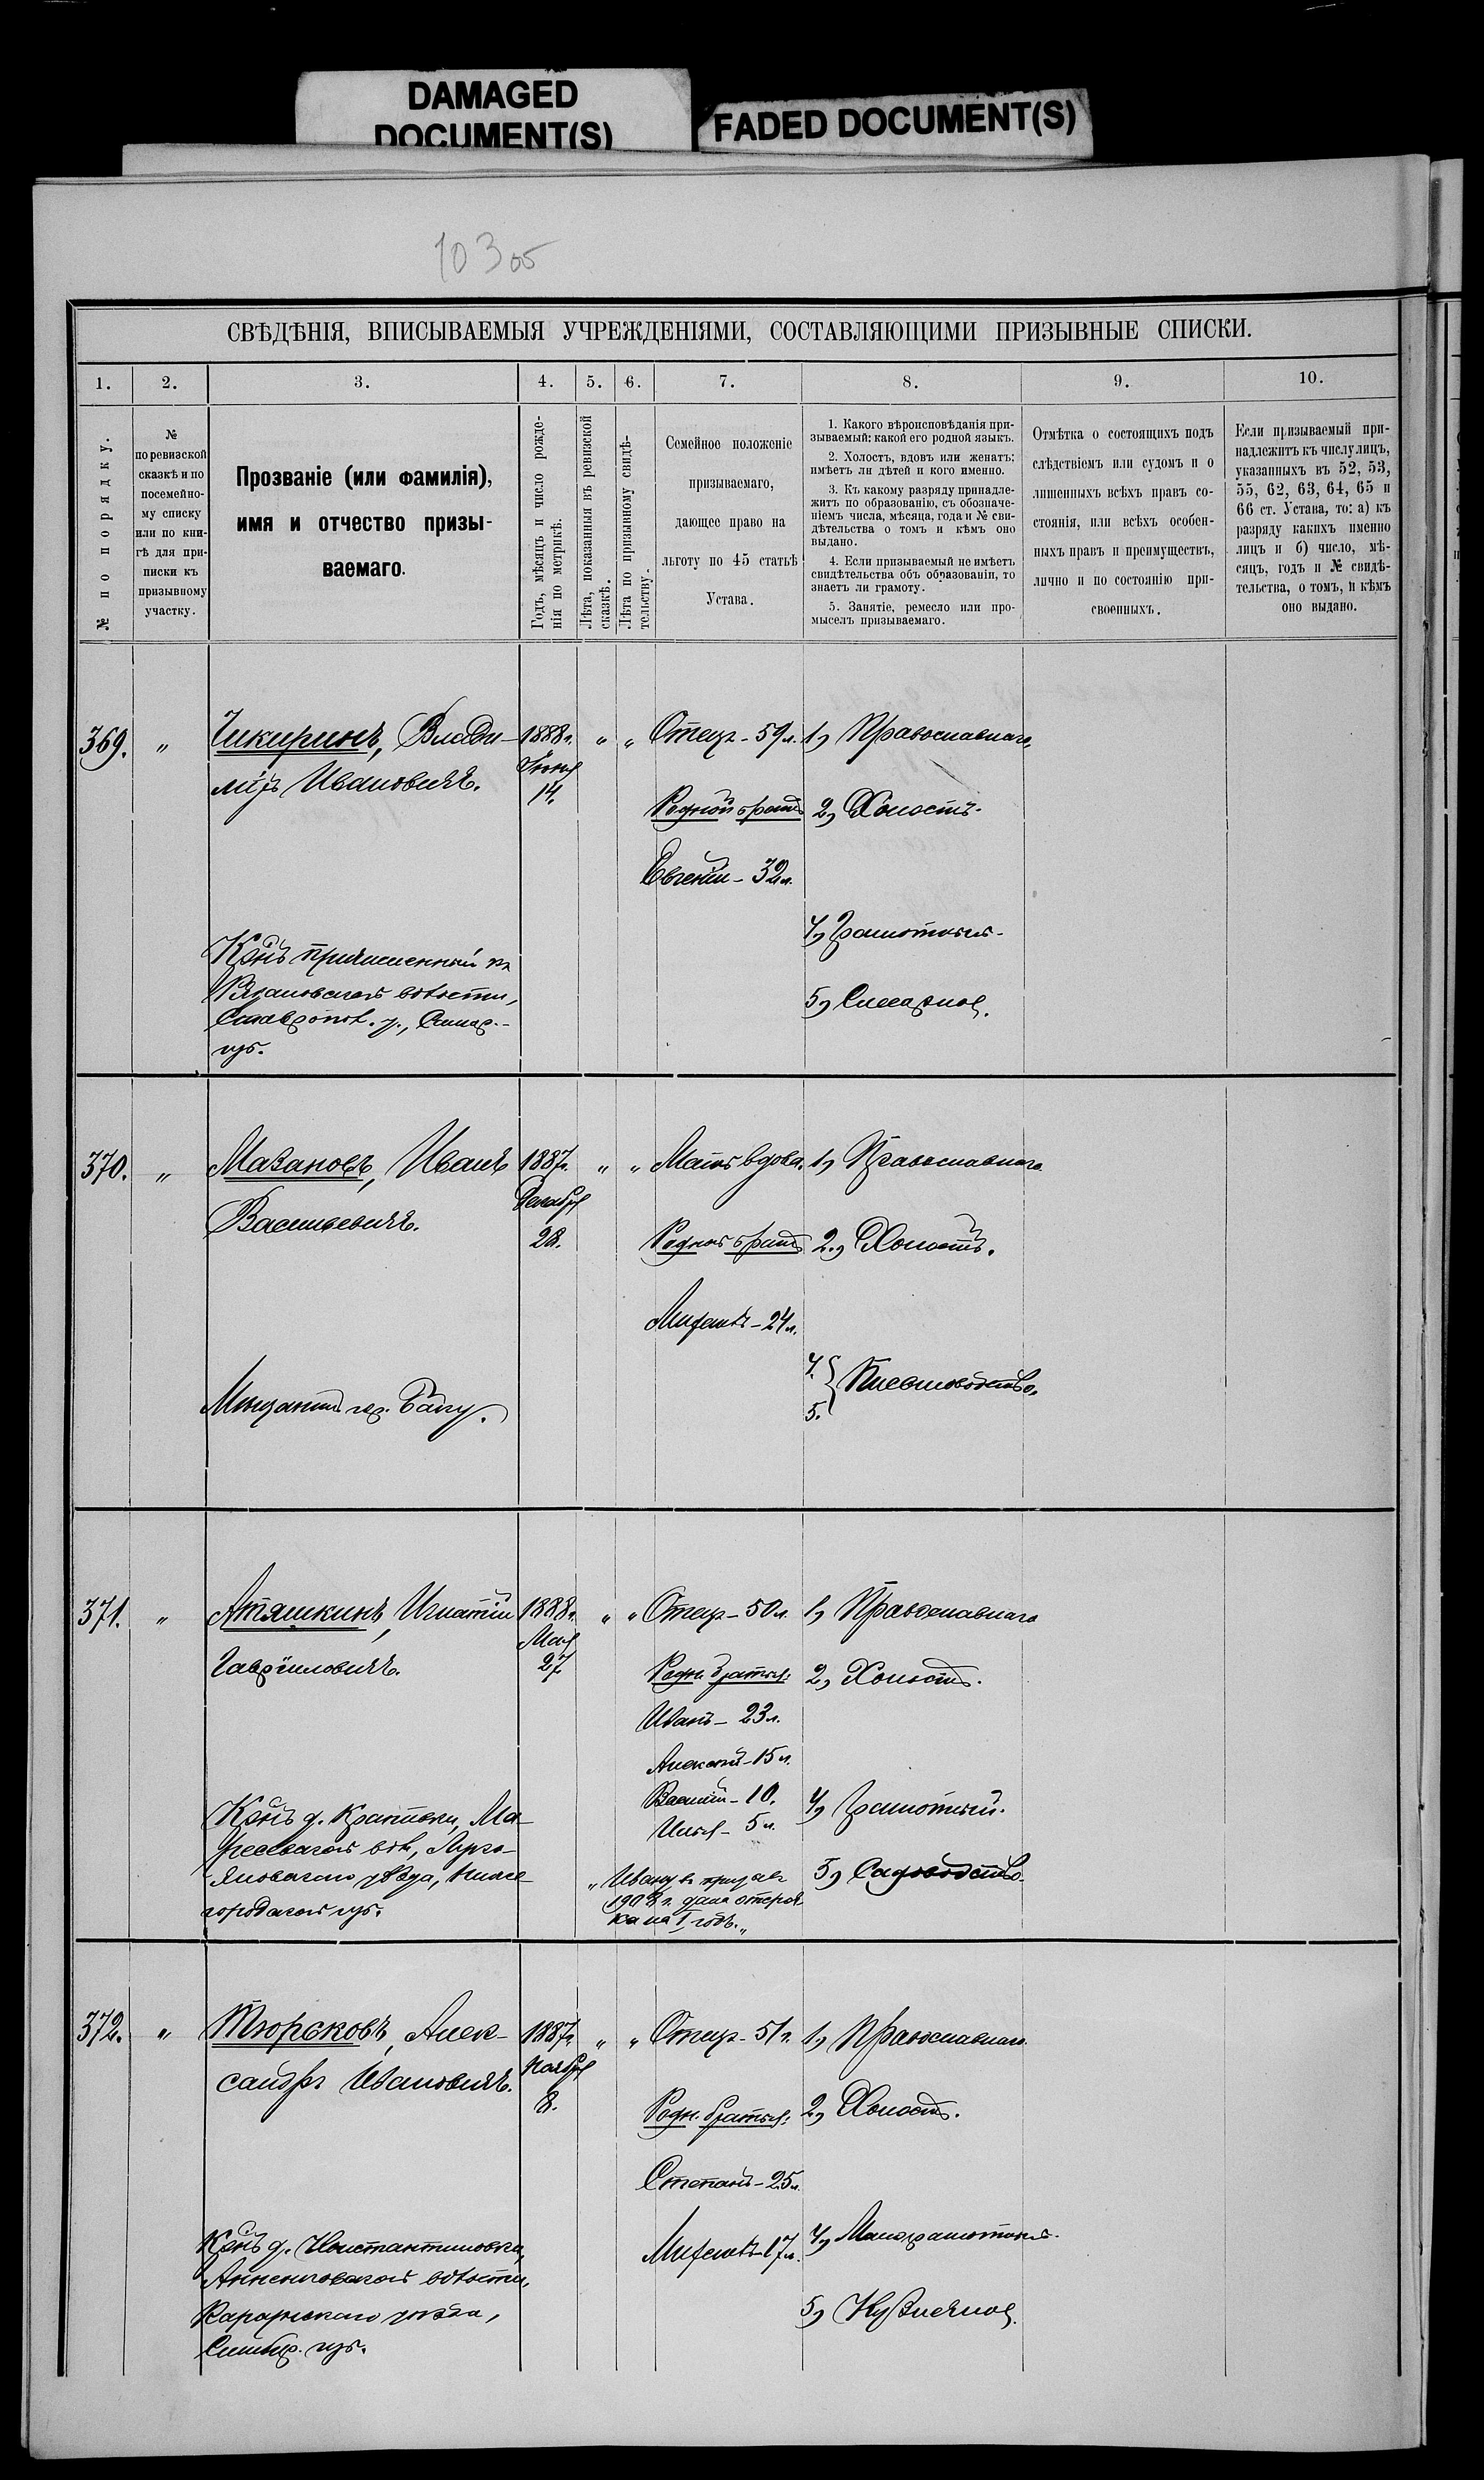 DAMAGED
DOCUMENT(S)
FADED DOCUMENT(S)
10305
СВѢДѢНІЯ, ВПИСЫВАЕМЫЯ УЧРЕЖДЕНІЯМИ, СОСТАВЛЯЮЩИМИ ПРИЗЫВНЫЕ СПИСКИ.
1.
2.
3.
4.
5.
6.
7.
8.
9.
10.
№ по порядку.
№
по ревизской
сказкѣ и по
посемейно-
му списку
или по кни-
гѣ для при-
писки къ
призывному
участку.
Прозваніе (или фамилія),
имя и отчество призы-
ваемаго.
Годъ, мѣсяцъ и число рожде-
нія по метрикѣ.
Лѣта, показанныя въ ревизской
сказкѣ.
Лѣта по призывному свидѣ-
тельству.
Семейное положеніе
призываемаго,
дающее право на
льготу по 45 статьѣ
Устава.
1. Какого вѣроисповѣданія при-
зываемый: какой его родной языкъ.
2. Холостъ, вдовъ или женатъ;
имѣетъ ли дѣтей и кого именно.
3. Къ какому разряду принадле-
житъ по образованію, съ обозначе-
ніемъ числа, мѣсяца, года и № сви-
дѣтельства о томъ и кѣмъ оно
выдано.
4. Если призываемый не имѣетъ
свидѣтельства объ образованіи, то
знаетъ ли грамоту.
5. Занятіе, ремесло или про-
мыселъ призываемаго.
Отмѣтка о состоящихъ подъ
слѣдствіемъ или судомъ и о
лишенныхъ всѣхъ правъ со-
стоянія, или всѣхъ особен-
ныхъ правъ и преимуществъ,
лично и по состоянію при-
своенныхъ.
Если призываемый при-
надлежитъ къ числу лицъ,
указанныхъ въ 52, 53,
55, 62, 63, 64, 65 и
66 ст. Устава, то: а) къ
разряду какихъ именно
лицъ и б) число, мѣ-
сяцъ, годъ и № свидѣ-
тельства, о томъ, и кѣмъ
оно выдано.
369. " Чикиринъ, Влади-
міръ Ивановичъ.
1888 г.
Іюня
14.
" "
Отецъ - 59 л.
Родной братъ
Евгеній - 32 л.
1) Православнаго
2) Холостъ.
4) Грамотный.
5) Слесарное.
Кр-нъ причисленный къ
Рязановской волости,
Ставропол. у., Самар.
губ.
370. " Мазановъ, Иванъ
Васильевичъ.
1887 г.
Декабря
28.
" "
Мать вдова.
Родной братъ
Михаилъ - 24 л.
1) Православнаго
2.) Холостъ.
4.
5.
Письмоводство.
Мѣщанинъ гор. Баку.
371. " Атяшкинъ, Игнатій
Гавріиловичъ.
1888 г.
Мая
27
" "
Отецъ - 50 л.
Родн. братья:
Иванъ - 23 л.
Алексѣй - 15 л.
Василій - 10.
Илья - 5 л.
"Ивану въ призывъ
1908 г. дана отсроч-
ка на 1 годъ."
1) Православнаго
2) Холостъ.
4) Грамотный.
5) Садоводство.
Кр-нъ д.
вол., Луко-
яновскаго уѣзда, Ниже-
городской губ.
372. " Тюрсковъ, Алек-
сандръ Ивановичъ.
1887 г.
Ноября
8.
" "
Отецъ - 51 г.
Родн. братья:
Степанъ - 25 л.
Михаилъ - 17 л.
1) Православнаго
2) Холостъ.
4) Малограмотный.
5) Кузнечное.
Кр-нъ д. Константиновки,
Анненковской волости,
уѣзда,
Симбир. губ.